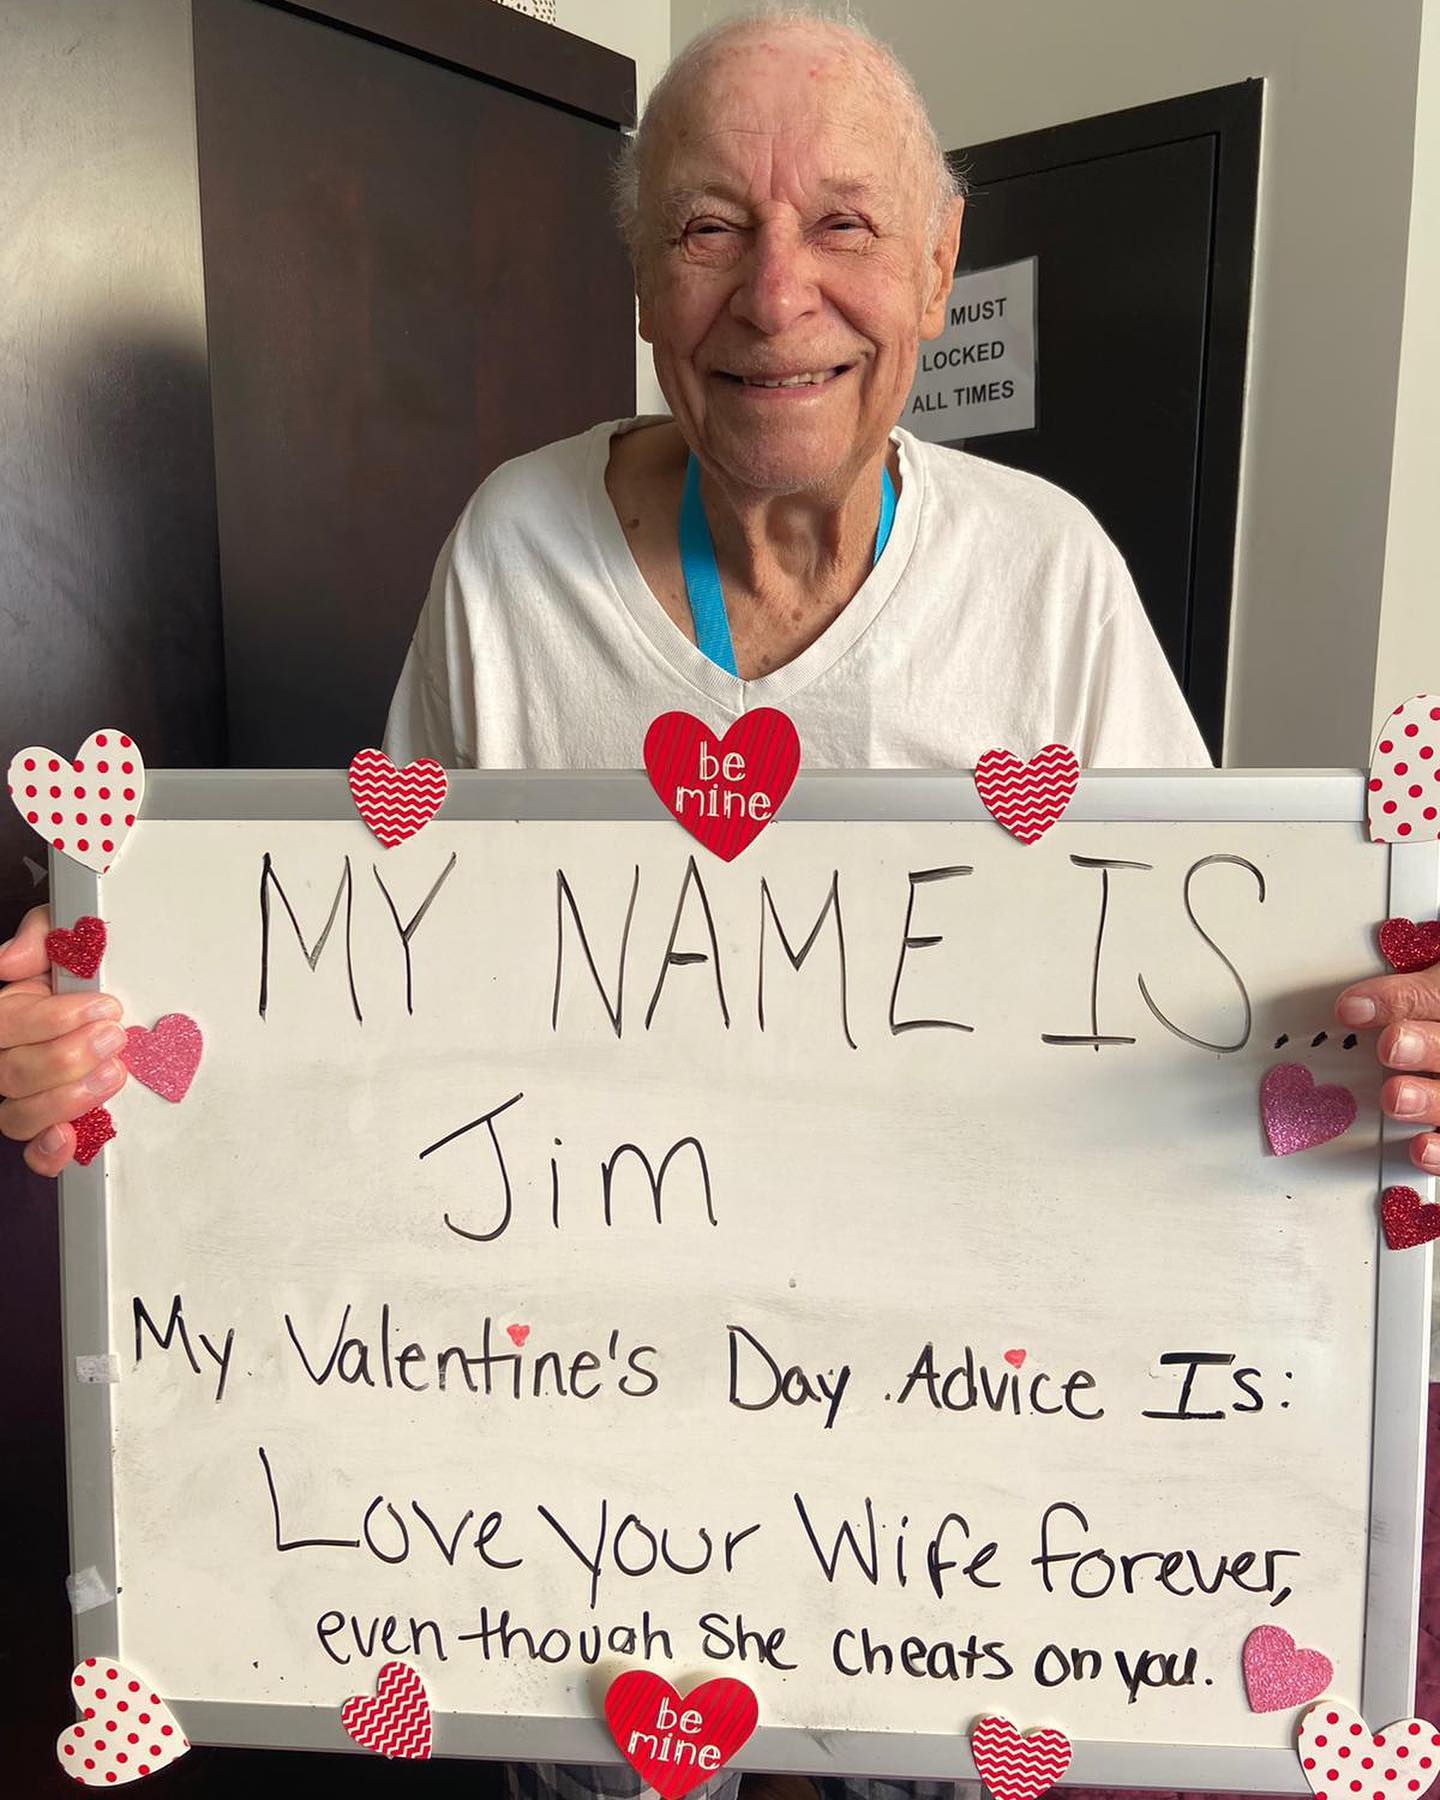 MUST
LOCKED
ALL TIMES
be
mine
MY NAME IS...
Jim
My Valentine's Day Advice Is:
Love your Wife forever,
even though she cheats on you.
be
mine